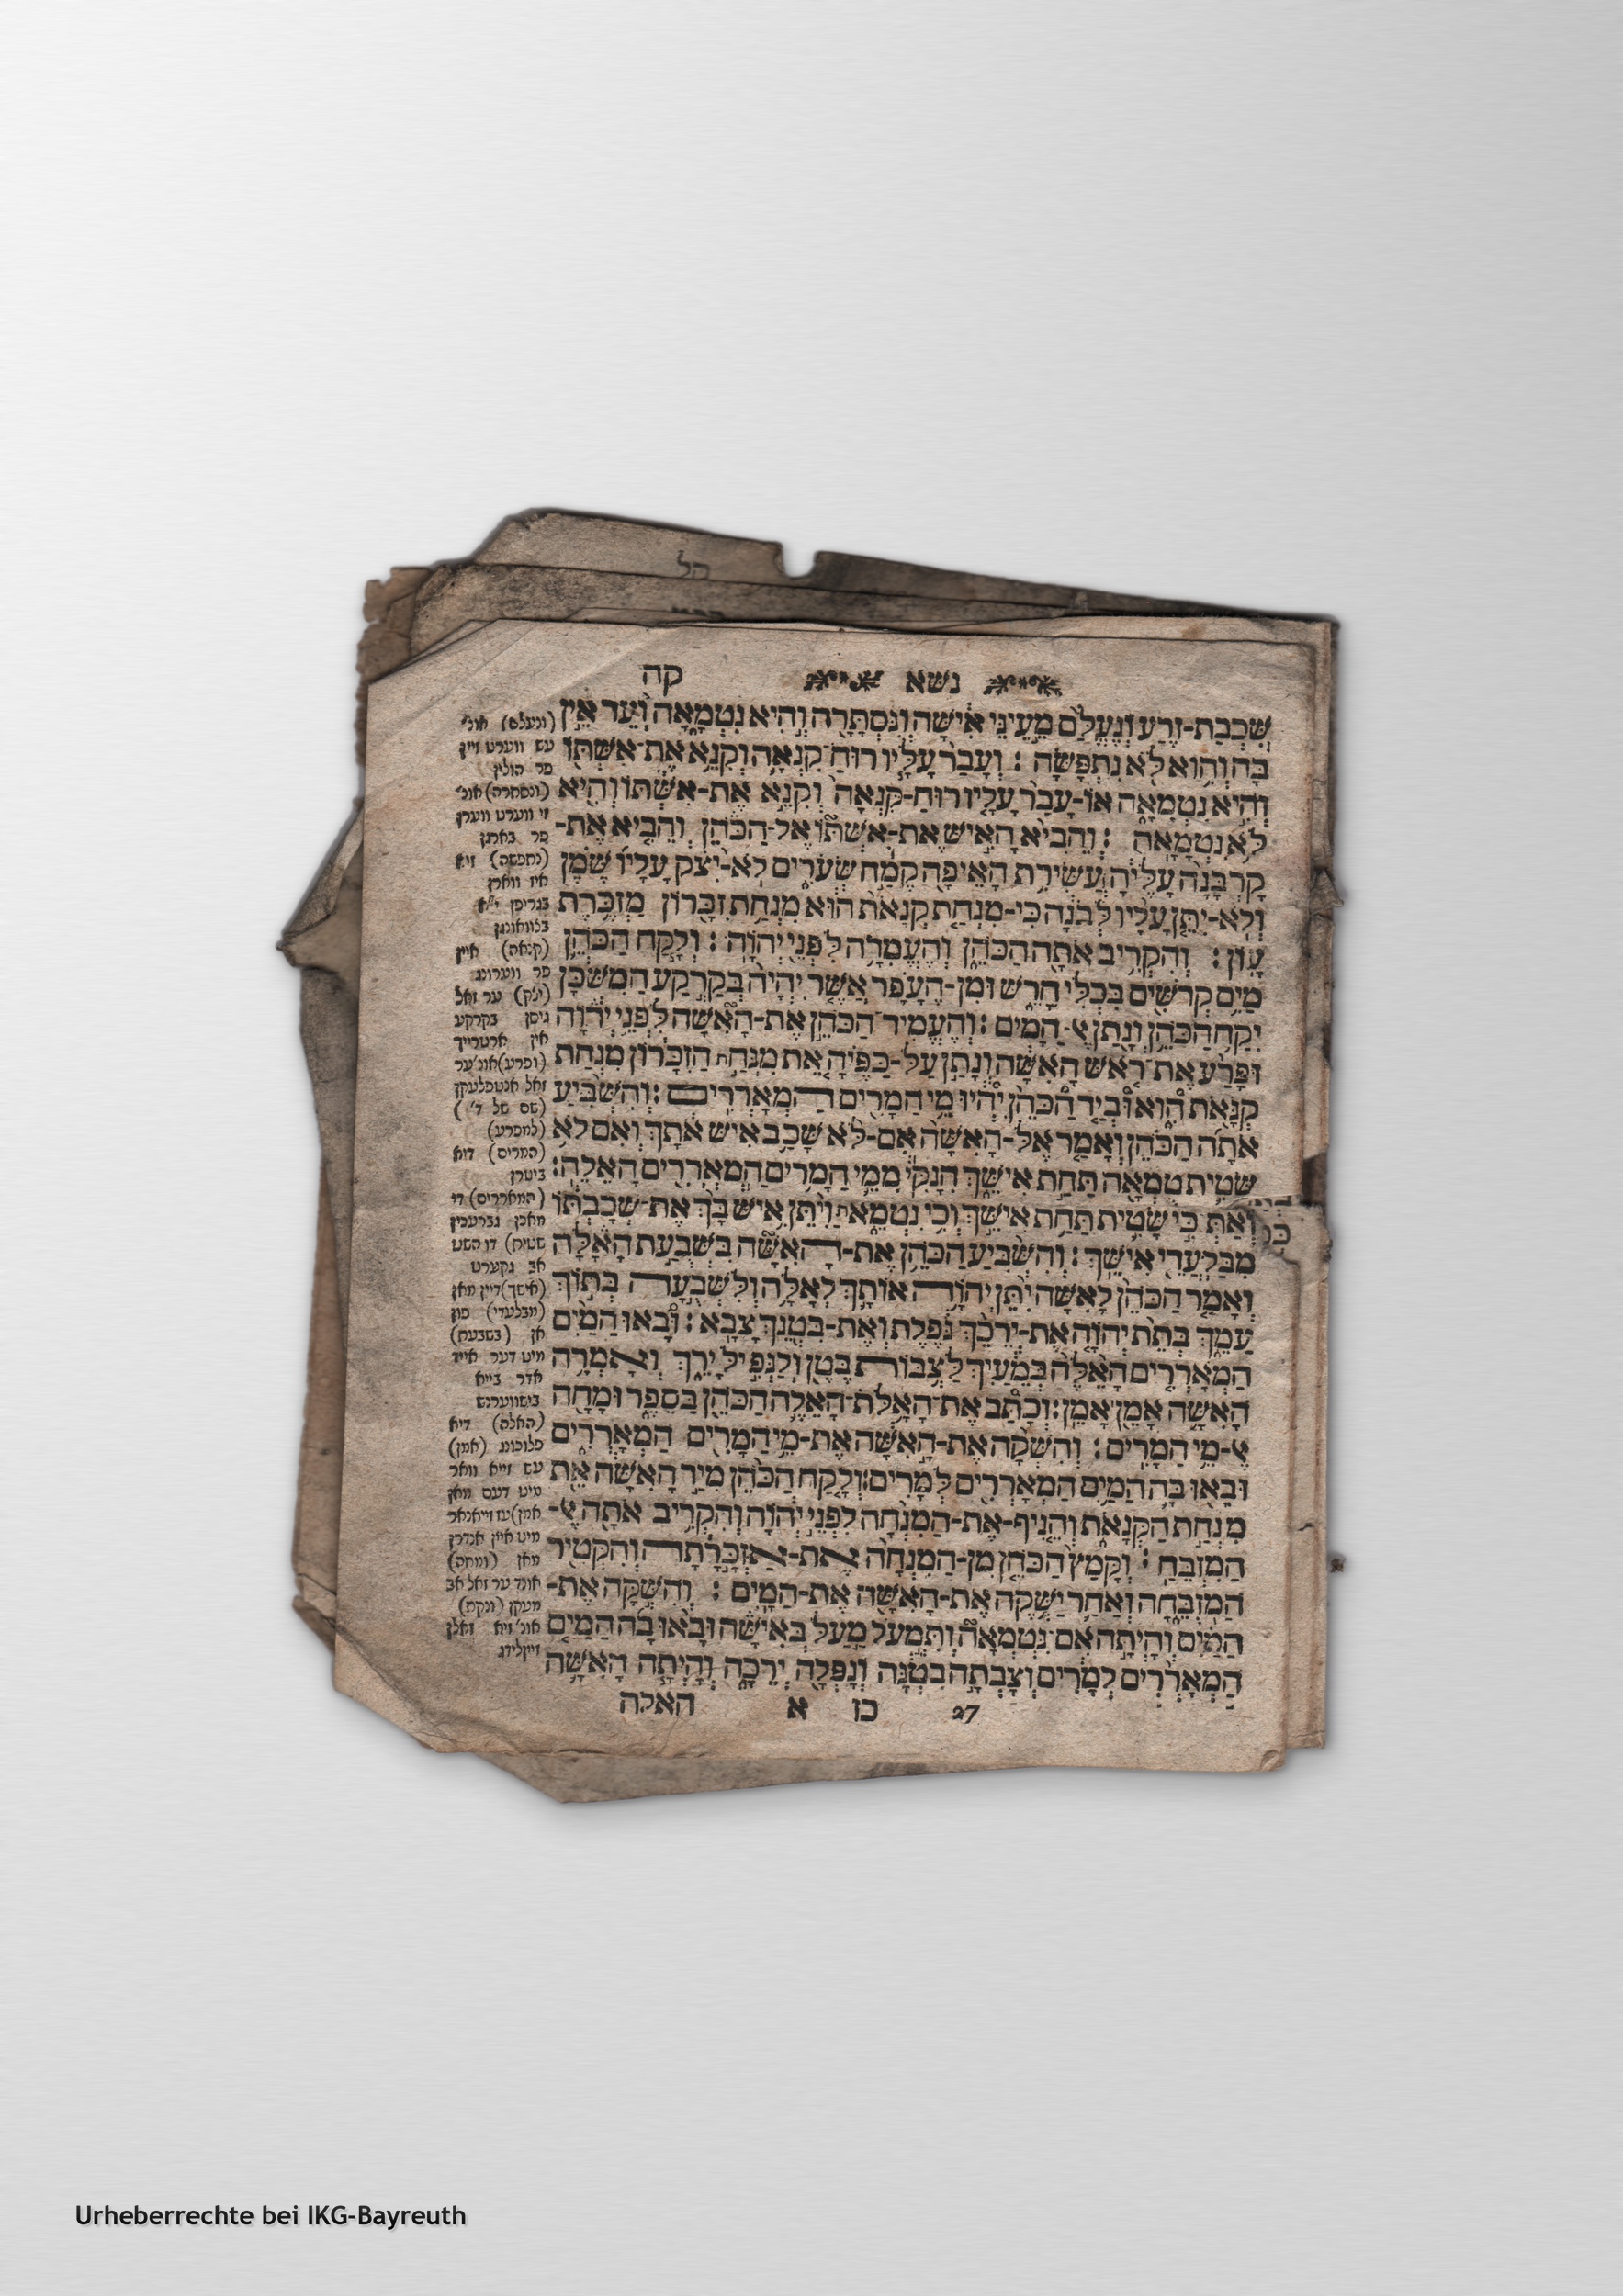 הל
נשא קה
שִׁכְבַת-זֶרַע וְנֶעְלַם מֵעֵינֵי אִישָׁהּ וְנִסְתְּרָה וְהִיא נִטְמָאָה וְעֵד אֵין
בָּהּ וְהִוא לֹא נִתְפָּשָׂה : וְעָבַר עָלָיו רוּחַ קִנְאָה וְקִנֵּא אֶת־אִשְׁתּוֹ
וְהִיא נִטְמָאָה אוֹ-עָבַר עָלָיו רוּחַ-קִנְאָה וְקִנֵּא אֶת-אִשְׁתּוֹ וְהִיא
לֹא נִטְמָאָה : וְהֵבִיא הָאִישׁ אֶת-אִשְׁתּוֹ אֶל-הַכֹּהֵן וְהֵבִיא אֶת-
קָרְבָּנָהּ עָלֶיהָ עֲשִׂירִת הָאֵיפָה קֶמַח שְׂעֹרִים לֹא-יִצֹק עָלָיו שֶׁמֶן
וְלֹא-יִתֵּן עָלָיו לְבֹנָה כִּי-מִנְחַת קְנָאֹת הוּא מִנְחַת זִכָּרוֹן מַזְכֶּרֶת
עָוֹן : וְהִקְרִיב אֹתָהּ הַכֹּהֵן וְהֶעֱמִדָהּ לִפְנֵי יְהוָֹה : וְלָקַח הַכֹּהֵן
מַיִם קְדֹשִׁים בִּכְלִי חָרֶשׂ וּמִן-הֶעָפָר אֲשֶׁר יִהְיֶה בְּקַרְקַע הַמִּשְׁכָּן
יִקַּח הַכֹּהֵן וְנָתַן אֶ-הַמָּיִם : וְהֶעֱמִיד הַכֹּהֵן אֶת-הָאִשָּׁה לִפְנֵי יְהוָֹה
וּפָרַע אֶת־רֹאשׁ הָאִשָּׁה וְנָתַן עַל-כַּפֶּיהָ אֵת מִנְחַת הַזִּכָּרוֹן מִנְחַת
קְנָאֹת הִוא וּבְיַד הַכֹּהֵן יִהְיוּ מֵי הַמָּרִים הַמְאָרְרִים : וְהִשְׁבִּיעַ
אֹתָהּ הַכֹּהֵן וְאָמַר אֶל-הָאִשָּׁה אִם-לֹא שָׁכַב אִישׁ אֹתָךְ וְאִם לֹא
שָׂטִית טֻמְאָה תַּחַת אִישֵׁךְ הִנָּקִי מִמֵּי הַמָּרִים הַמְאָרְרִים הָאֵלֶּה:
וְאַתְּ כִּי שָׂטִית תַּחַת אִישֵׁךְ וְכִי נִטְמֵאת וַיִּתֵּן אִישׁ בָּךְ אֶת־שְׁכָבְתּוֹ
מִבַּלְעֲדֵי אִישֵׁךְ : וְהִשְׁבִּיעַ הַכֹּהֵן אֶת-הָאִשָּׁה בִּשְׁבֻעַת הָאָלָה
וְאָמַר הַכֹּהֵן לָאִשָּׁה יִתֵּן יְהוָֹה אוֹתָךְ לְאָלָה וְלִשְׁבֻעָה בְּתוֹךְ
עַמֵּךְ בְּתֵת יְהוָֹה אֶת-יְרֵכֵךְ נֹפֶלֶת וְאֶת-בִּטְנֵךְ צָבָא : וּבָאוּ הַמַּיִם
הַמְאָרְרִים הָאֵלֶּה בְּמֵעַיִךְ לַצְבּוֹת בֶּטֶן וְלַנְפִּיל יָרֵךְ וְאָמְרָה
הָאִשָּׁה אָמֵן אָמֵן: וְכָתַב אֶת־הָאָלֹת הָאֵלֶּה הַכֹּהֵן בַּסֵּפֶר וּמָחָה
אֶ-מֵי הַמָּרִים : וְהִשְׁקָה אֶת-הָאִשָּׁה אֶת-מֵי הַמָּרִים הַמְאָרְרִים
וּבָאוּ בָהּ הַמַּיִם הַמְאָרְרִים לְמָרִים: וְלָקַח הַכֹּהֵן מִיַּד הָאִשָּׁה אֵת
מִנְחַת הַקְּנָאֹת וְהֵנִיף-אֶת-הַמִּנְחָה לִפְנֵי יְהוָֹה וְהִקְרִיב אֹתָהּ אֶ-
הַמִּזְבֵּחַ : וְקָמַץ הַכֹּהֵן מִן-הַמִּנְחָה אֶת-אַזְכָּרָתָהּ וְהִקְטִיר
הַמִּזְבֵּחָה וְאַחַר יַשְׁקֶה אֶת-הָאִשָּׁה אֶת-הַמָּיִם : וְהִשְׁקָהּ אֶת-
הַמַּיִם וְהָיְתָה אִם־נִטְמְאָה וַתִּמְעֹל מַעַל בְּאִישָׁהּ וּבָאוּ בָהּ הַמַּיִם
הַמְאָרְרִים לְמָרִים וְצָבְתָה בִטְנָהּ וְנָפְלָה יְרֵכָהּ וְהָיְתָה הָאִשָּׁה
27 כז א האלה
(ונעלם) אונ'
עש ווערט זיין
פר הולין
(ונסתרה) אונ'
זי ווערט ווערן
פר בארגן
(נתפשה) זיא
איז ווארן
בגריפן
(קנאה) איין
פר ווערונג
(יצק) ער זאל
גיסן בקרקע
אין ארטרייך
(ופרע) אונ' ער
זאל אנטפלעקן
(למפרע)
(המרים) דיא
ביטרן
(המאררים) דז
מאכן
אב גקערט
(אישך) דיין מאן
(מבלעדי) פון
אן (בשבעת)
מיט דער אייד
אדר בייא
בשווערנש
(האלה) דיא
פלוכונג (אמן)
עס זייא וואר
מיט דעם מאן
מיט איין אנדרן
מאן (ומחה)
אונד ער זאל אב
מעקן (ונקת)
אונ' זיא זאלן
Urheberrechte bei IKG-Bayreuth